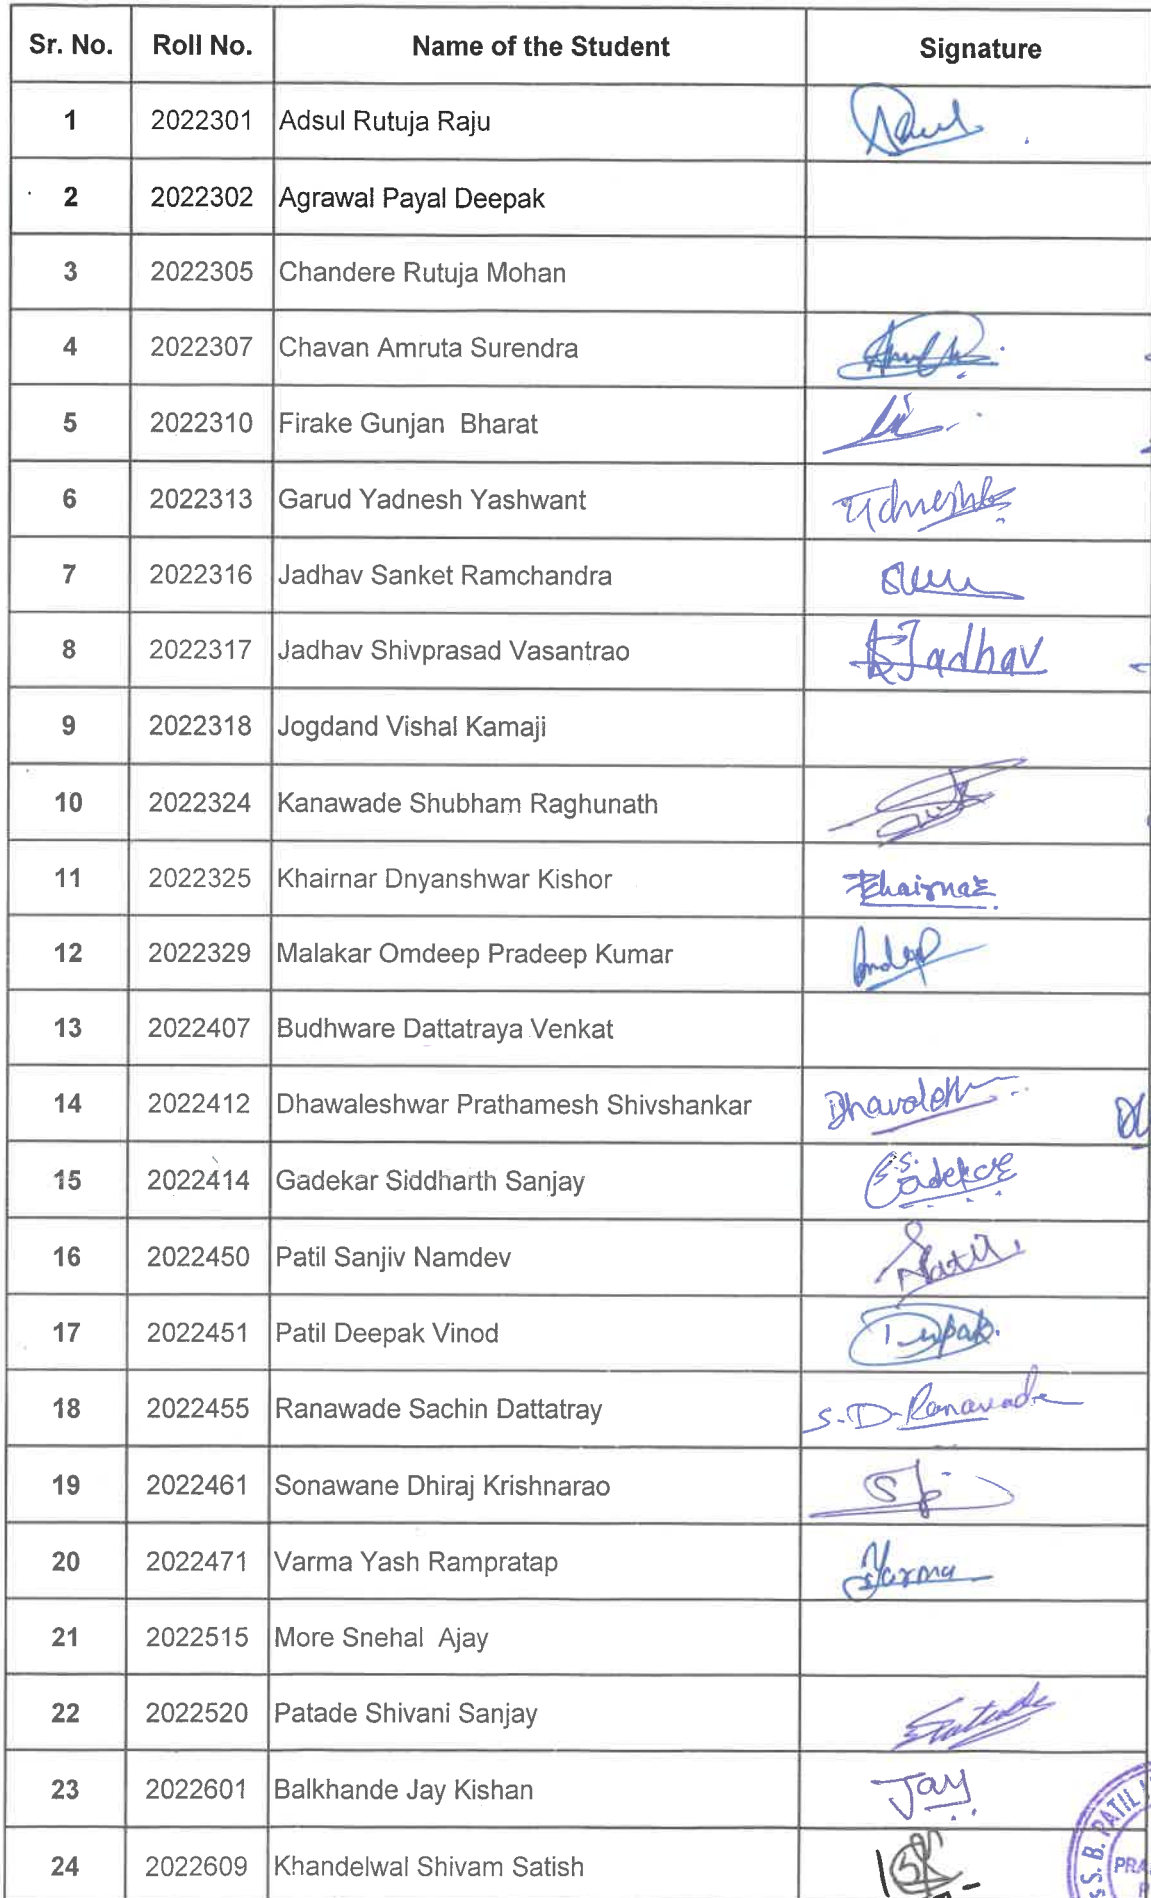 Sr. No. Roll No. Name of the Student Signature
1 2022301 Adsul Rutuja Raju
2 2022302 Agrawal Payal Deepak
3 2022305 Chandere Rutuja Mohan
4 2022307 Chavan Amruta Surendra
5 2022310 Firake Gunjan Bharat
6 2022313 Garud Yadnesh Yashwant
7 2022316 Jadhav Sanket Ramchandra
8 2022317 Jadhav Shivprasad Vasantrao Jadhav
9 2022318 Jogdand Vishal Kamaji
10 2022324 Kanawade Shubham Raghunath
11 2022325 Khairnar Dnyanshwar Kishor Khairnar
12 2022329 Malakar Omdeep Pradeep Kumar
13 2022407 Budhware Dattatraya Venkat
14 2022412 Dhawaleshwar Prathamesh Shivshankar
15 2022414 Gadekar Siddharth Sanjay
16 2022450 Patil Sanjiv Namdev
17 2022451 Patil Deepak Vinod
18 2022455 Ranawade Sachin Dattatray S.D. Ranawade
19 2022461 Sonawane Dhiraj Krishnarao
20 2022471 Varma Yash Rampratap
21 2022515 More Snehal Ajay
22 2022520 Patade Shivani Sanjay
23 2022601 Balkhande Jay Kishan Jay
24 2022609 Khandelwal Shivam Satish
S. B. PATIL